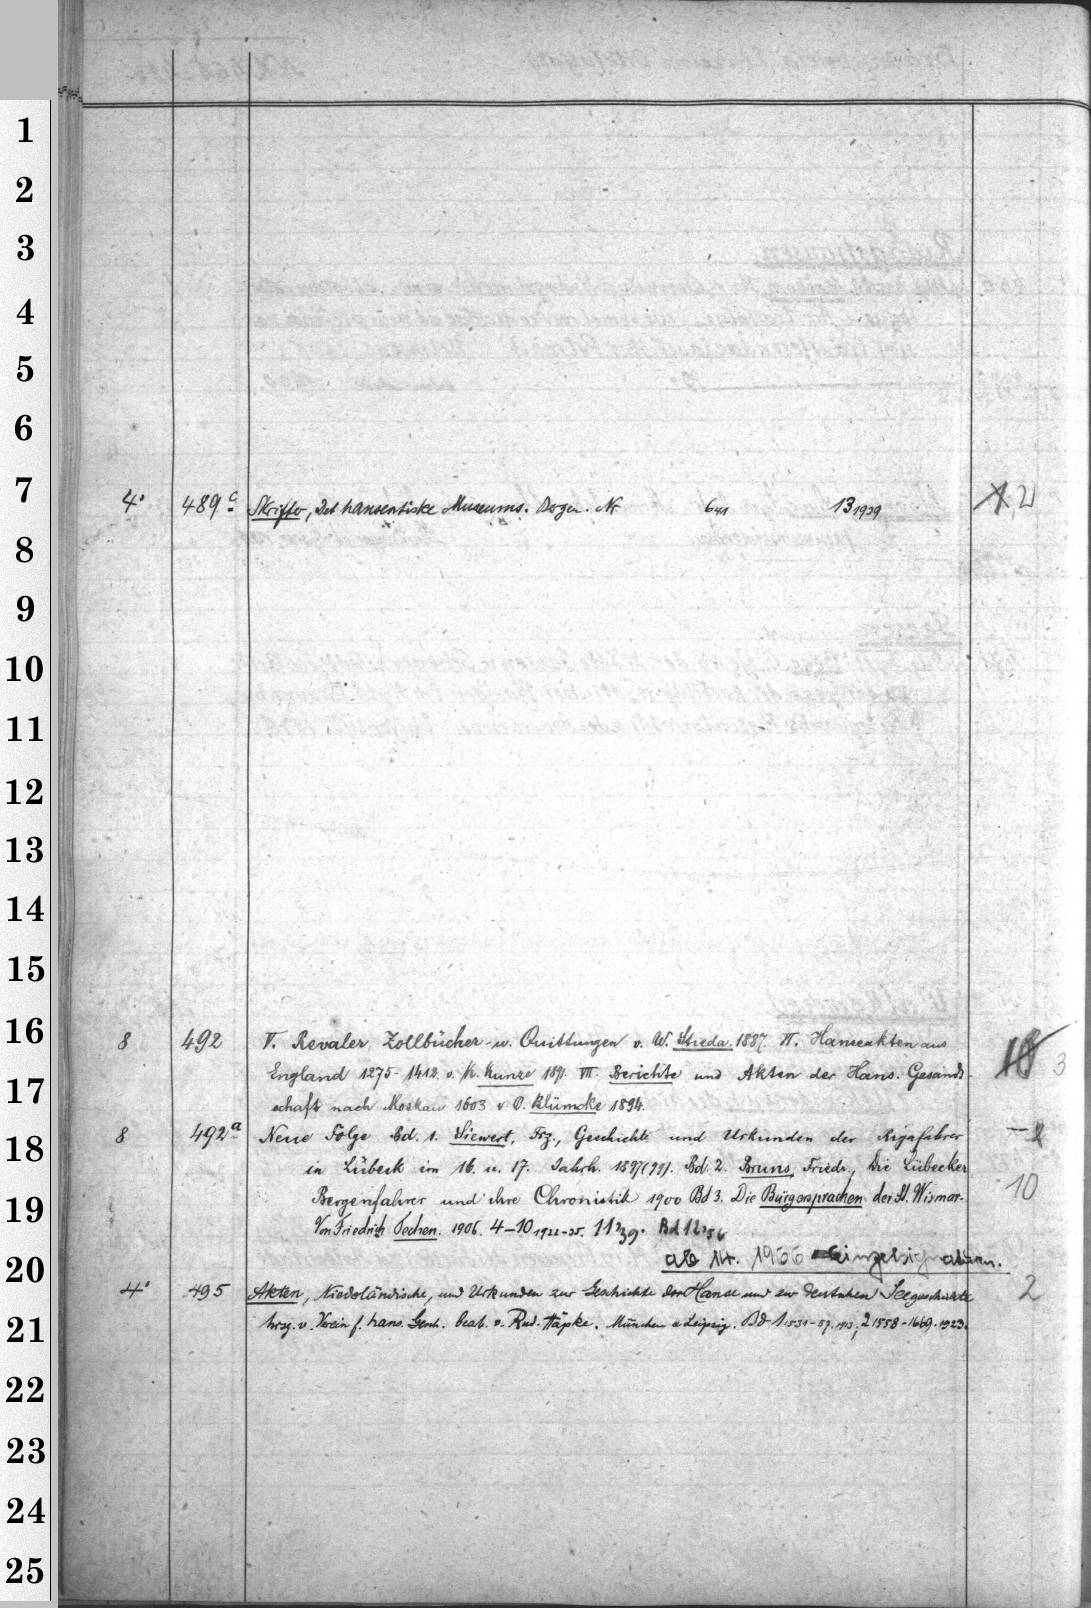 1
2
3
4
5
6
7
4° 489c Skrifter, Det hanseatiske Museums. Bergen. Nr. 6 41 13 1939 2
8
9
10
11
12
13
14
15
16
8 492 V. Revaler Zollbücher u. Quittungen v. W. Stieda. 1887. VI. Hanseakten aus
17
England 1275-1412. v. K. Kunze 1891. VII. Berichte und Akten der Hans. Gesandt- 3
schaft nach Moskau 1603 v. O. Blümcke 1894.
18
8 492a Neue Folge Bd. 1. Siewert, Frz., Geschichte und Urkunden der Rigafahrer
in Lübeck im 16. u. 17. Jahrh. 1897(99). Bd 2. Bruns, Friedr., Die Lübecker 10
19
Bergenfahrer und ihre Chronistik 1900 Bd 3. Die Bürgersprachen der St. Wismar.
Von Friedrich Techen. 1906. 4-10 1922-35. 11 39. Bd 12 56
20
ab 14. 1966 Einzelsignaturen.
4° 495 Akten, Niederländische, und Urkunden zur Geschichte der Hanse und zur deutschen Seegeschichte 2
21
hrsg. v. Verein f. hans. Gesch. bearb. v. Rud. Häpke. München u Leipzig. Bd 1 1531-57. 1913; 2 1558-1669. 1923.
22
23
24
25